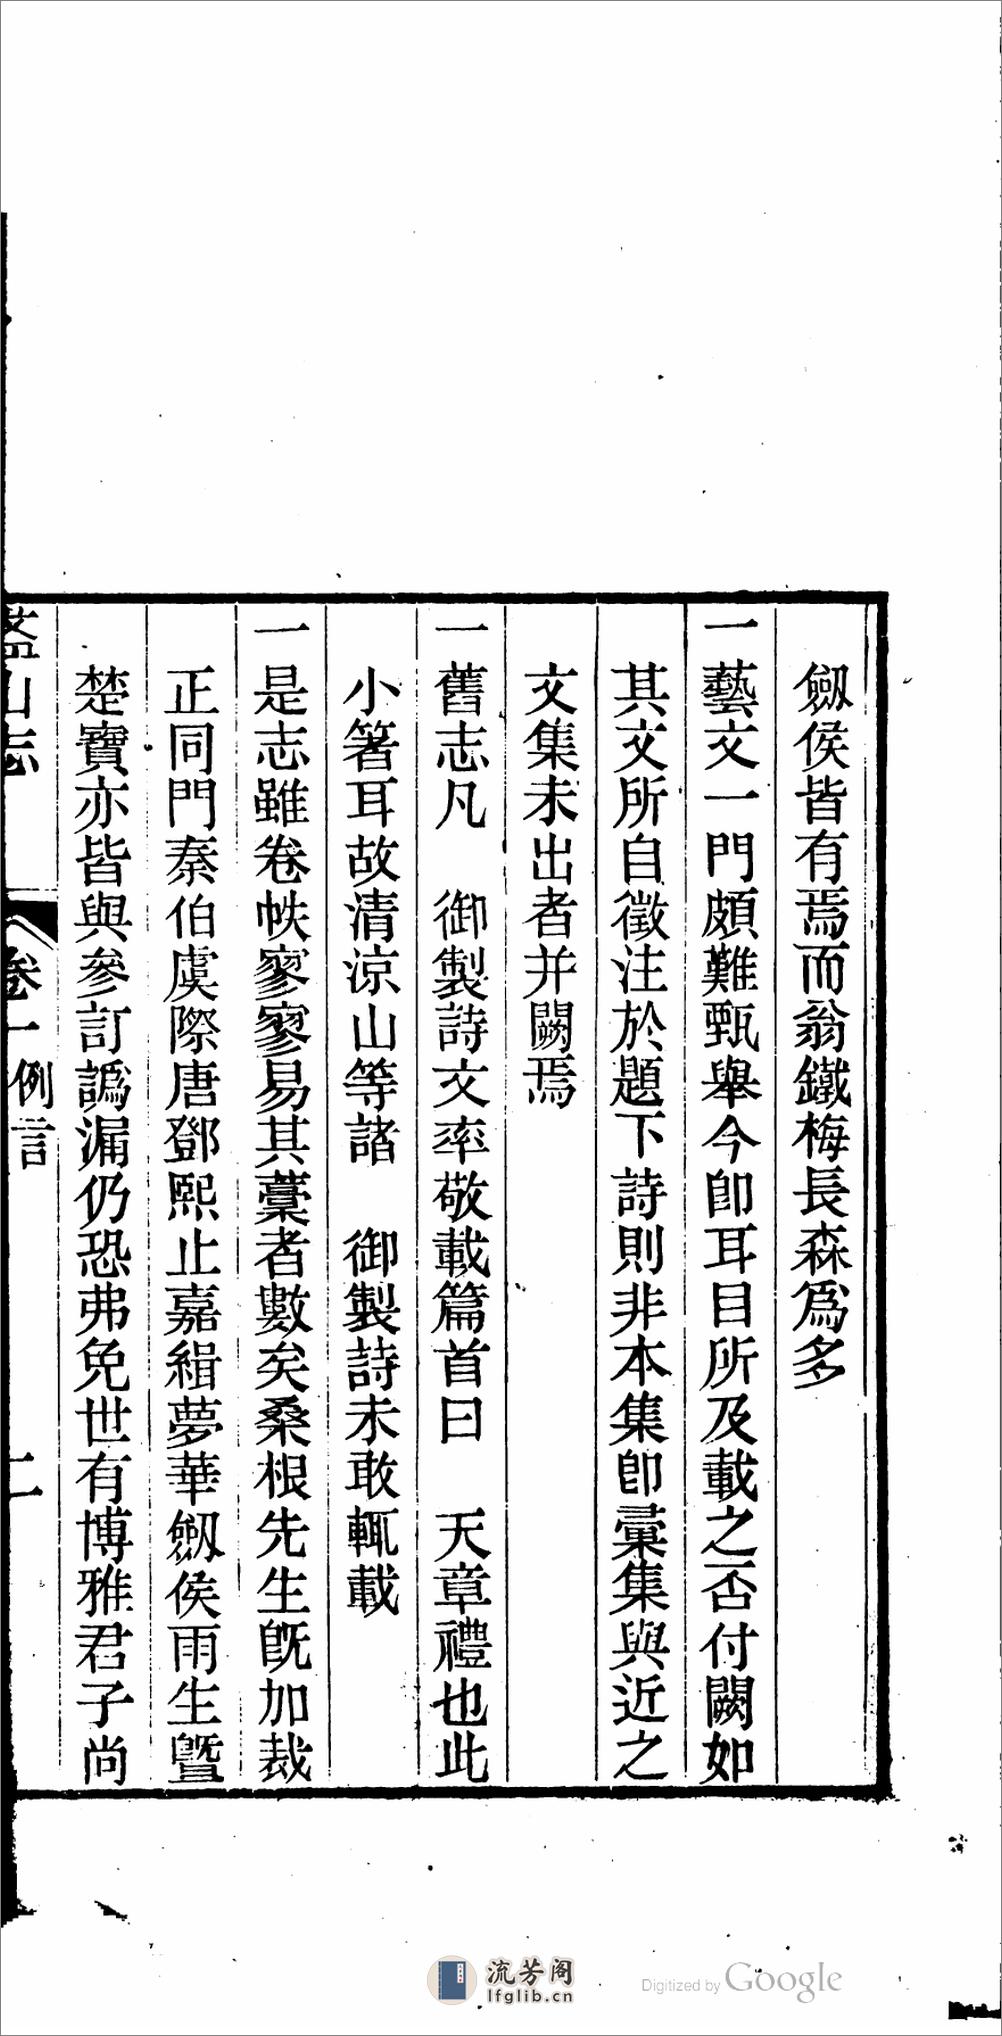 劔侯皆有焉而翁鐵梅長森爲多
一藝文一門頗難甄舉今卽耳目所及載之否付闕如
其文所自徵注於題下詩則非本集卽彙集與近之
文集未出者并闕焉
一舊志凡　御製詩文率敬載篇首曰　天章禮也此
小箸耳故清涼山等諸　御製詩未敢輒載
一是志雖卷帙寥寥易其藳者數矣桑根先生旣加裁
正同門秦伯虞際唐鄧熙止嘉緝夢華劔侯雨生曁
楚寶亦皆與參訂譌漏仍恐弗免世有博雅君子尚
盋山志　卷一例言　二
流芳阁
lfglib.cn
Digitized by Google